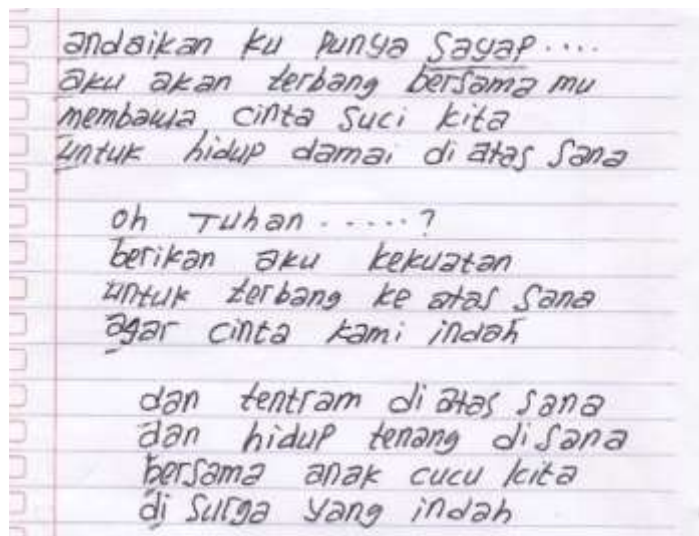 andaikan ku punya sayap....
aku akan terbang bersama mu
membawa cinta suci kita
untuk hidup damai di atas sana
oh Tuhan.....?
berikan aku kekuatan
untuk terbang ke atas sana
agar cinta kami indah
dan tentram di atas sana
dan hidup tenang disana
bersama anak cucu kita
di surga yang indah